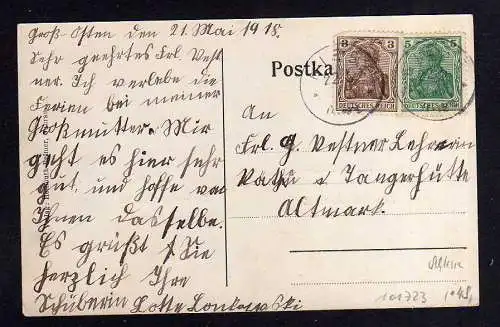 Groß-Osten den 21. Mai 1918.
Sehr geehrtes Frl. Vest
ner. Ich verlebe die
Ferien bei meiner
Großmutter. Mir
geht es hier sehr
gut, und hoffe von
Ihnen dasselbe.
Es grüßt Sie
herzlich Ihre
Schülerin Lotte
Postka
3 3
DEUTSCHES REICH
5 5
An
Frl. G. Vestner Lehrerin
Tangerhütte
Altmark.
101723